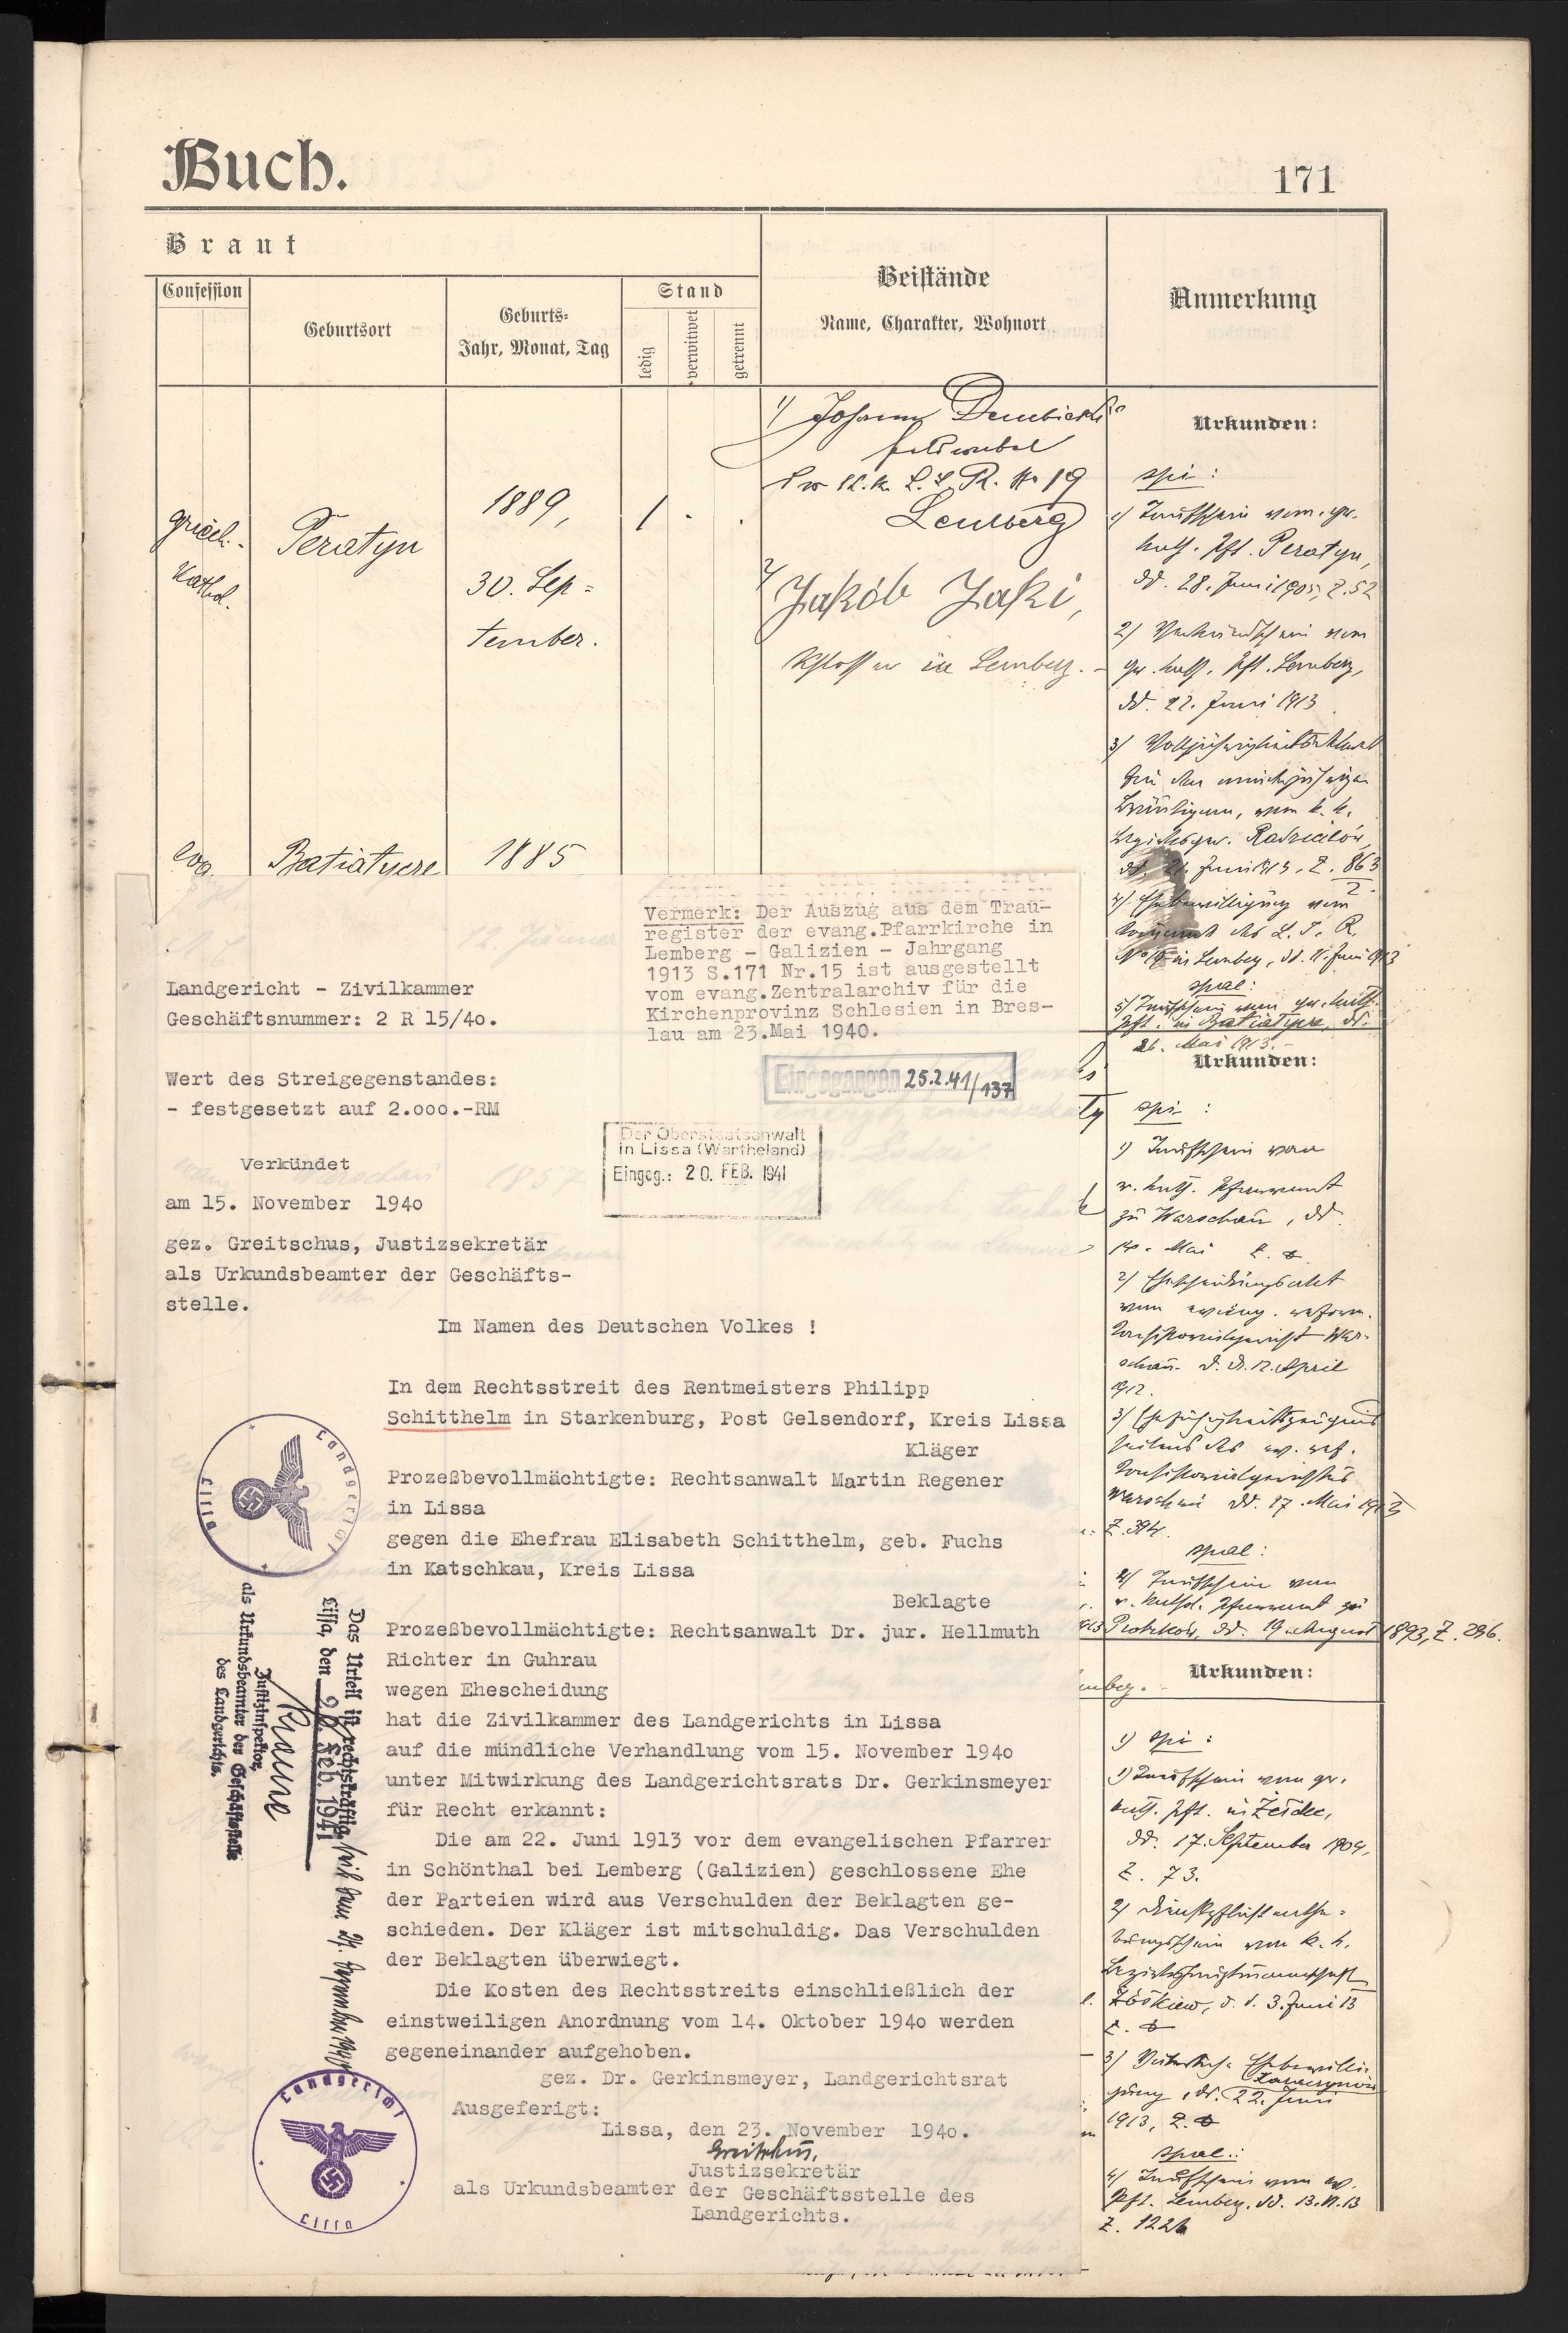 Buch.
171
Braut
Confession
Geburtsort
Geburts-
Jahr, Monat, Tag
Stand
ledig
verwitwet
getrennt
Beistände
Name, Charakter, Wohnort
Anmerkung
griech.-
kathol.
Peratyn
1889,
30. Sep-
tember.
1/ Johann Dembicki
Feldwebel
Lemberg
2/
Jakób Jaki,
in Lemberg.
ev.
Batiatycze
1885
Urkunden:
spi:
1/ Taufschein vom gr.
kath. Pft. Peratyn,
dd. 28. Juni 1905, Z. 52
2/ Verkündschein vom
gr. kath. Pft. Lemberg,
dd. 22. Juni 1913
3/
vom k. k.
Radziechów
Juni 1913, Z. 863
4/ Ehebewilligung vom
des L. I. R.
No 19 in Lemberg, dd. 11. Juni 1913
spal:
5/ Taufschein vom gr. kath.
Pft. in Batiatycze, dd.
26. Mai 1913.-
Urkunden:
spi:
1/ Taufschein vom
r. kath. Pfarramt
zu Warschau, dd.
14. Mai
2/ Ehescheidungsakt
vom evang. reform.
War-
schau d. d. 12. April
1912.
3/ Ehefähigkeitszeugnis
seitens des ev. ref.
Warschau dd. 17. Mai 1913
Z. 394.
spal:
4/ Taufschein vom
r. kathol. Pfarramt zu
Piotrków, dd. 19. August 1893, Z. 296.
Urkunden:
1/ spi:
1/ Taufschein vom gr.
kath. Pft. in
dd. 17. September 1904,
Z. 73.
2/
vom k. k.
Bezirkshauptmannschaft
Żółkiew, d. d. 3. Juni 13
3/
dd. 22. Juni
1913, Z.
spal.:
4/ Taufschein vom ev.
Pft. Lemberg, dd. 13.VI.13
Z. 1226
Vermerk: Der Auszug aus dem Trau-
register der evang.Pfarrkirche in
Lemberg - Galizien - Jahrgang
1913 S.171 Nr.15 ist ausgestellt
vom evang.Zentralarchiv für die
Kirchenprovinz Schlesien in Bres-
lau am 23.Mai 1940.
Landgericht - Zivilkammer
Geschäftsnummer: 2 R 15/4o.
Eingegangen 25.2.41/137
Wert des Streigegenstandes:
- festgesetzt auf 2.ooo.-RM
Der Oberstaatsanwalt
in Lissa (Wartheland)
Eingeg.: 20. FEB. 1941
Verkündet
am 15. November 194o
gez. Greitschus, Justizsekretär
als Urkundsbeamter der Geschäfts-
stelle.
Im Namen des Deutschen Volkes !
In dem Rechtsstreit des Rentmeisters Philipp
Schitthelm in Starkenburg, Post Gelsendorf, Kreis Lissa
Kläger
Prozeßbevollmächtigte: Rechtsanwalt Martin Regener
in Lissa
gegen die Ehefrau Elisabeth Schitthelm, geb. Fuchs
in Katschkau, Kreis Lissa
Beklagte
Prozeßbevollmächtigte: Rechtsanwalt Dr. jur. Hellmuth
Richter in Guhrau
wegen Ehescheidung
hat die Zivilkammer des Landgerichts in Lissa
auf die mündliche Verhandlung vom 15. November 194o
unter Mitwirkung des Landgerichtsrats Dr. Gerkinsmeyer
für Recht erkannt:
Die am 22. Juni 1913 vor dem evangelischen Pfarrer
in Schönthal bei Lemberg (Galizien) geschlossene Ehe
der Parteien wird aus Verschulden der Beklagten ge-
schieden. Der Kläger ist mitschuldig. Das Verschulden
der Beklagten überwiegt.
Die Kosten des Rechtsstreits einschließlich der
einstweiligen Anordnung vom 14. Oktober 194o werden
gegeneinander aufgehoben.
gez. Dr. Gerkinsmeyer, Landgerichtsrat
Ausgeferigt:
Lissa, den 23. November 194o.
Greitschus,
Justizsekretär
als Urkundsbeamter der Geschäftsstelle des
Landgerichts.
Landgericht
Lissa
Das Urteil ist rechtskräftig, seit dem 24. Dezember 1940
Lissa, den 20. Feb. 1941
Krause
Justizinspektor,
als Urkundsbeamter der Geschäftsstelle
des Landgerichts.
Landgericht
Lissa